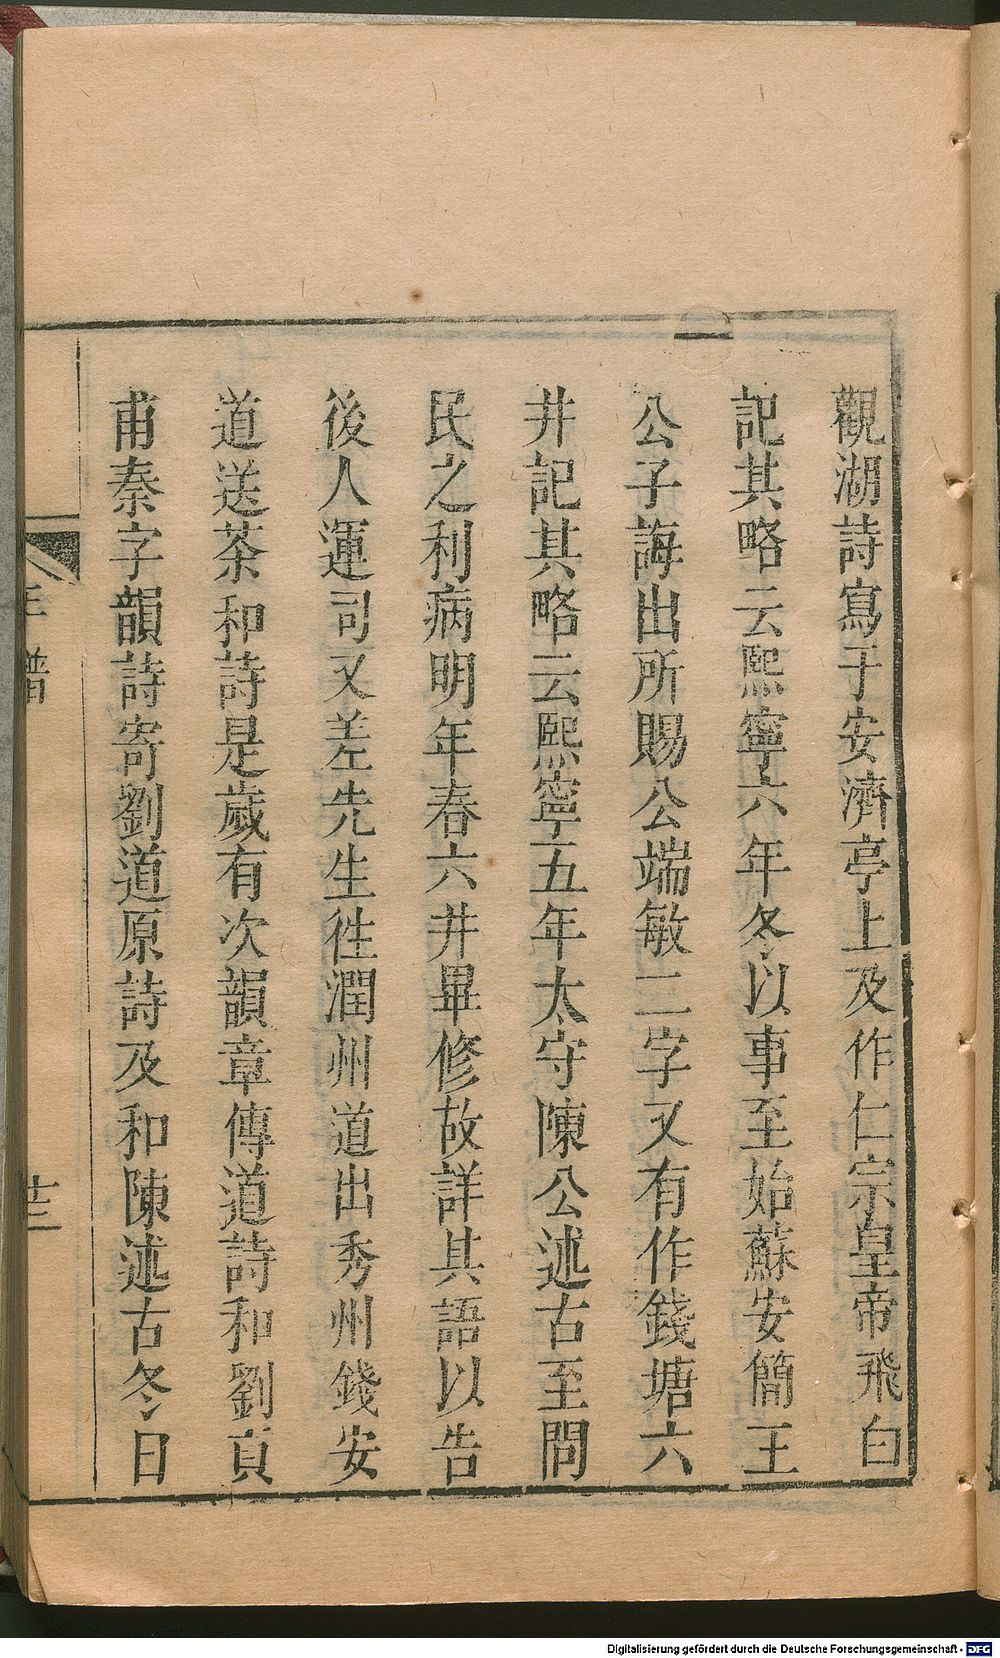 觀湖詩寫于安濟亭上及作仁宗皇帝飛白
記其略云熙寧六年冬以事至始蘇安簡王
公子誨出所賜公端敏二字又有作錢塘六
井記其略云熙寧五年太守陳公述古至問
民之利病明年春六井畢修故詳其語以告
後人運司又差先生徃潤州道出秀州錢安
道送茶和詩是歲有次韻章傳道詩和劉貢
甫秦字韻詩寄劉道原詩及和陳述古冬日
年譜
廿三
Digitalisierung gefördert durch die Deutsche Forschungsgemeinschaft - DFG